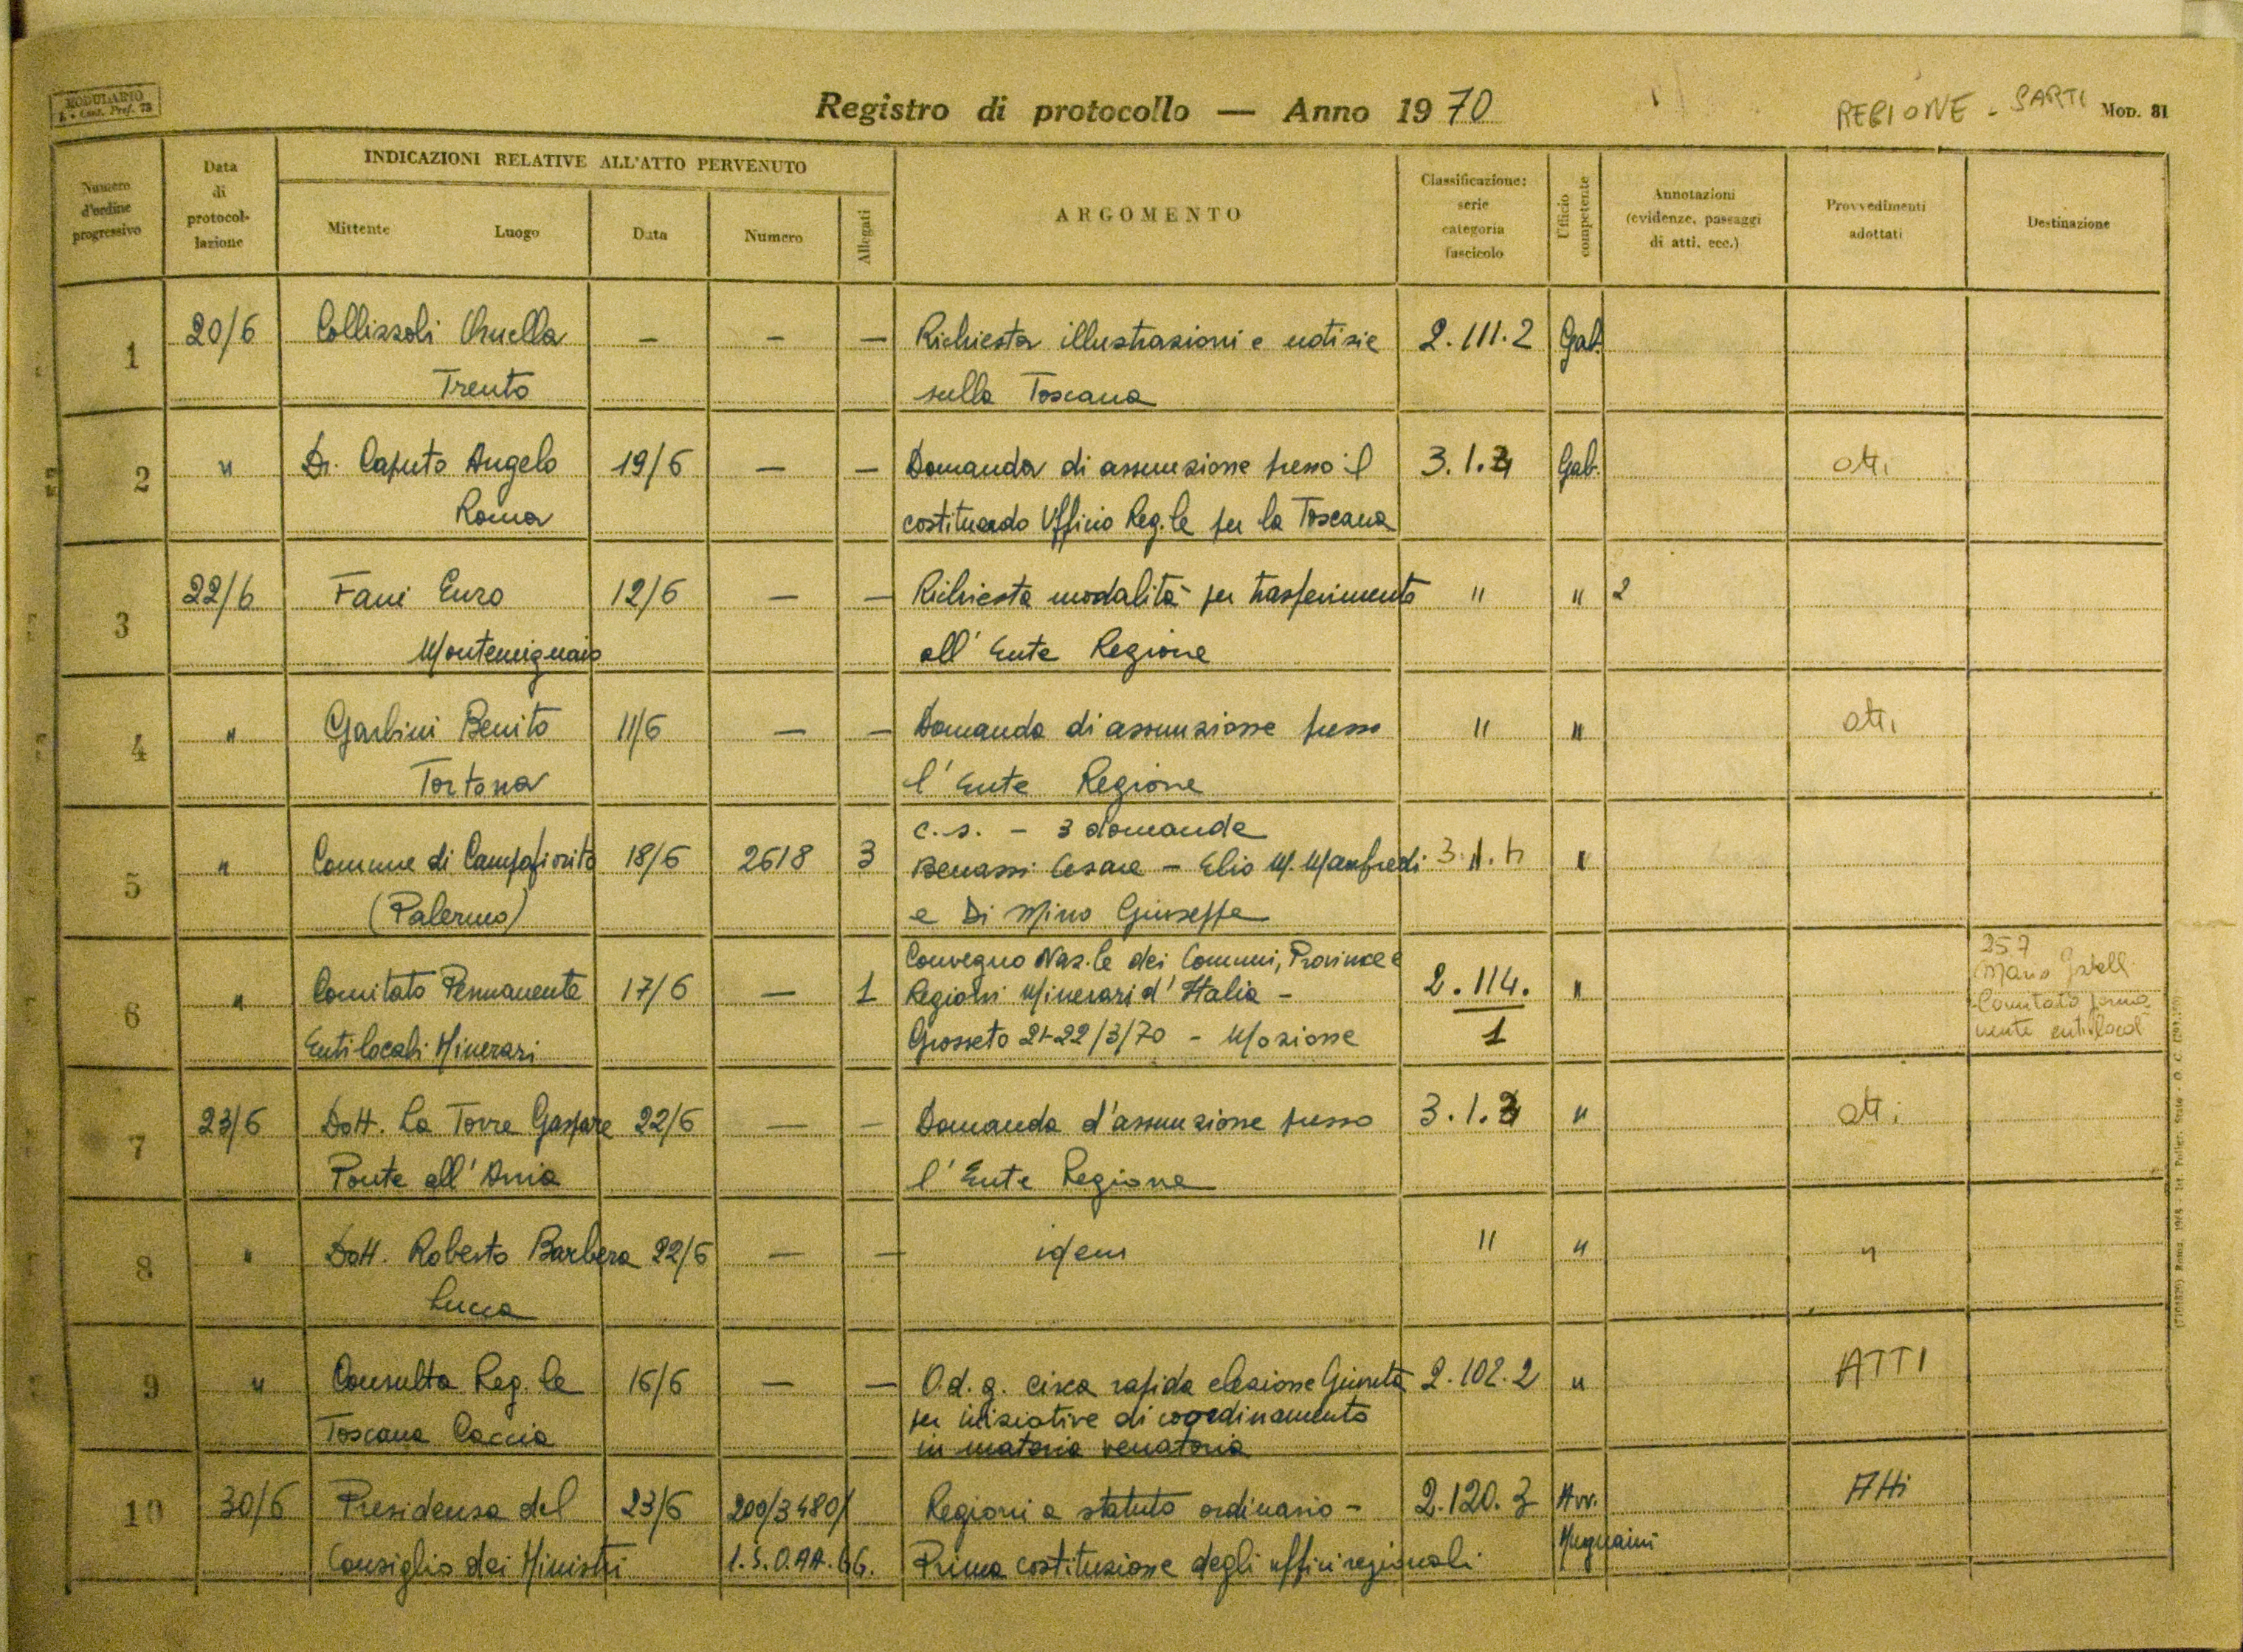 MODULARIO
Registro di protocollo — Anno 1970
REGIONE - SARTI
Mod. 81
Numero d'ordine progressivo
Data di protocollazione
INDICAZIONI RELATIVE ALL'ATTO PERVENUTO
Mittente Luogo
Data
Numero
Allegati
ARGOMENTO
Classificazione: serie categoria fascicolo
Ufficio competente
Annotazioni (evidenze, passaggi di atti, ecc.)
Provvedimenti adottati
Destinazione
1 20/6 Collizzoli — — — Richiesta illustrazioni e notizie 2.111.2 Gab.
Trento sulla Toscana
2 " Dr. Caputo Angelo 19/6 — — Domanda di assunzione presso il 3.1. Gab. atti
Roma costituendo Ufficio Reg.le per la Toscana
3 22/6 Fani Enzo 12/6 — — Richiesta modalità per trasferimento " " 2
Montemignaio all'Ente Regione
4 " Garbini Benito 11/6 — — Domanda di assunzione presso " " atti
Tortona l'Ente Regione
c.s. - 3 domande
5 " Comune di Campofiorito 18/6 2618 3 Benassi Cesare - Elio M. Manfredi "
(Palermo) e Di Mino Giuseppe
Convegno Naz.le dei Comuni, Province e
6 " Comitato Permanente 17/6 — 1 Regioni Minerari d'Italia - 2.114. "
Enti locali Minerari Grosseto 21-22/3/70 - Mozione 1
25 7
Mario
Comitato perma
nente enti local
7 23/6 Dott. La Torre Gaspare 22/6 — — Domanda d'assunzione presso 3.1. " atti
Ponte all'Ania l'Ente Regione
8 " Dott. Roberto Barbera 22/6 — — idem " " "
Lucca
9 " Consulta Reg.le 16/6 — — O.d.g. circa rapida elezione Giunta 2.102.2 " ATTI
Toscana Caccia per iniziative di coordinamento
in materia venatoria
10 30/6 Presidenza del 23/6 200/3480/ Regioni a statuto ordinario - 2.120.3 Avv. Atti
Consiglio dei Ministri 1.S.O.AA.GG. Prima costituzione degli uffici regionali Mugnaini